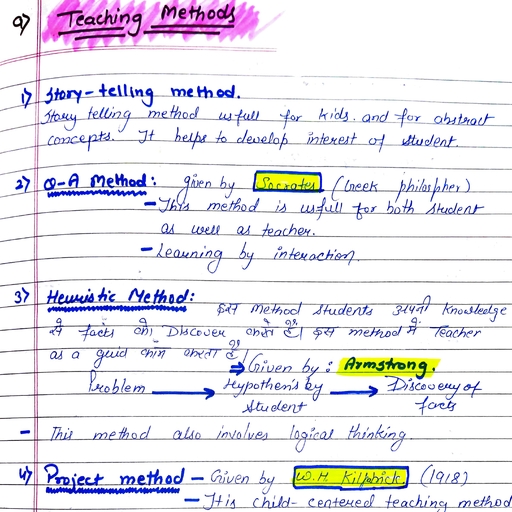 a) Teaching Methods
1) Story-telling method.
Story telling method usfull for kids. and for abstract
concepts. It helps to develop interest of student.
2) Q-A Method: given by Socrates (Greek philospher)
- This method is usfull for both student
as well as teacher.
- Learning by interaction.
3) Heuristic Method: इस method students अपनी knowledge
से facts को Discover करते हैं। इस method में Teacher
as a guid काम करता है।
⇒ Given by: Armstrong.
Problem → Hypothen's by → Discovery of
student facts
- This method also involves logical thinking.
4) Project method - Given by W.H Kilpatrick (1918)
- It is child-centered teaching method